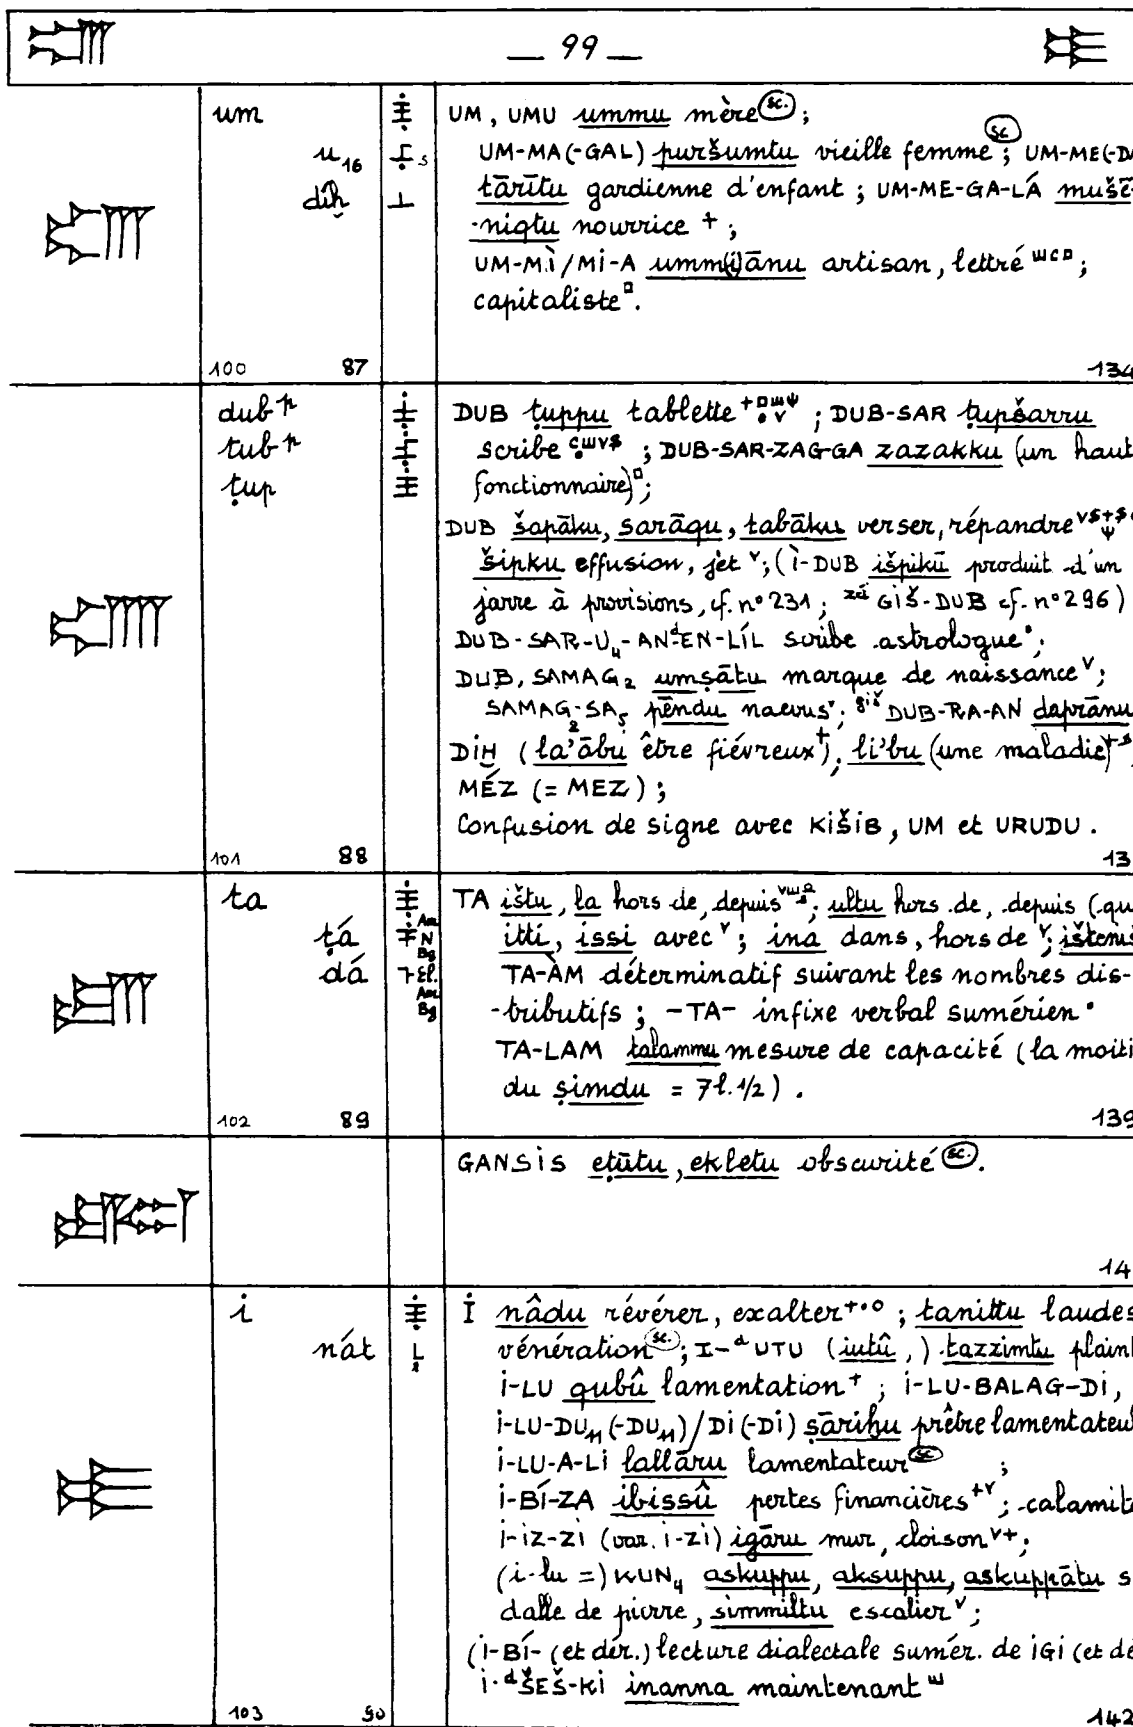 — 99 —
um
u₁₆
díḫ
UM, UMU ummu mère (sc.);
UM-MA(-GAL) puršumtu vieille femme (sc); UM-ME(-DA
tārītu gardienne d'enfant; UM-ME-GA-LÁ mušē-
-niqtu nourrice +;
UM-MÌ/MI-A umm(i)ānu artisan, lettré;
capitaliste.
100 87 134
dub p
tub p
ṭup
DUB ṭuppu tablette; DUB-SAR ṭupšarru
scribe; DUB-SAR-ZAG-GA zazakku (un haut
fonctionnaire);
DUB šapāku, sarāqu, tabāku verser, répandre
šipku effusion, jet v; (Ì-DUB išpikū produit d'un
jarre à provisions, cf. n° 231; zá GIŠ-DUB cf. n° 296)
DUB-SAR-U₄-AN-ᵈEN-LÍL scribe astrologue;
DUB, SAMAG₂ umṣātu marque de naissance v;
SAMAG₂-SA₅ pēndu naevus v; giš DUB-RA-AN daprānu
DIḪ (la'ābu être fiévreux +), li'bu (une maladie)
MÉZ (= MEZ);
Confusion de signe avec KIŠIB, UM et URUDU.
101 88 13
ta
ṭá
dá
Am N Bg
Él. Am Bg
TA ištu, la hors de, depuis; ultu hors de, depuis (qu
itti, issi avec v; ina dans, hors de v; ištēniš
TA-ÀM déterminatif suivant les nombres dis-
-tributifs; -TA- infixe verbal sumérien
TA-LAM talammu mesure de capacité (la moiti
du ṣimdu = 7 l. 1/2).
102 89 139
GANSIS eṭūtu, ekletu obscurité (sc.).
14
i
nát
I nâdu révérer, exalter; tanittu laudes
vénération (sc.); I-ᵈUTU (iutû,) tazzimtu plaint
i-LU qubû lamentation +; i-LU-BALAG-DI,
i-LU-DU₁₁(-DU₁₁)/DI(-DI) ṣāriḫu prêtre lamentateur
i-LU-A-LI lallāru lamentateur (sc);
i-BÍ-ZA ibissû pertes financières +v; calamité
i-IZ-ZI (var. i-ZI) igāru mur, cloison v+;
(i-lu =) KUN₄ askuppu, aksuppu, askuppātu s
dalle de pierre, simmiltu escalier v;
(i-BÍ- (et dér.) lecture dialectale sumér. de IGI (et dé
i-ᵈŠEŠ-KI inanna maintenant
103 90 142